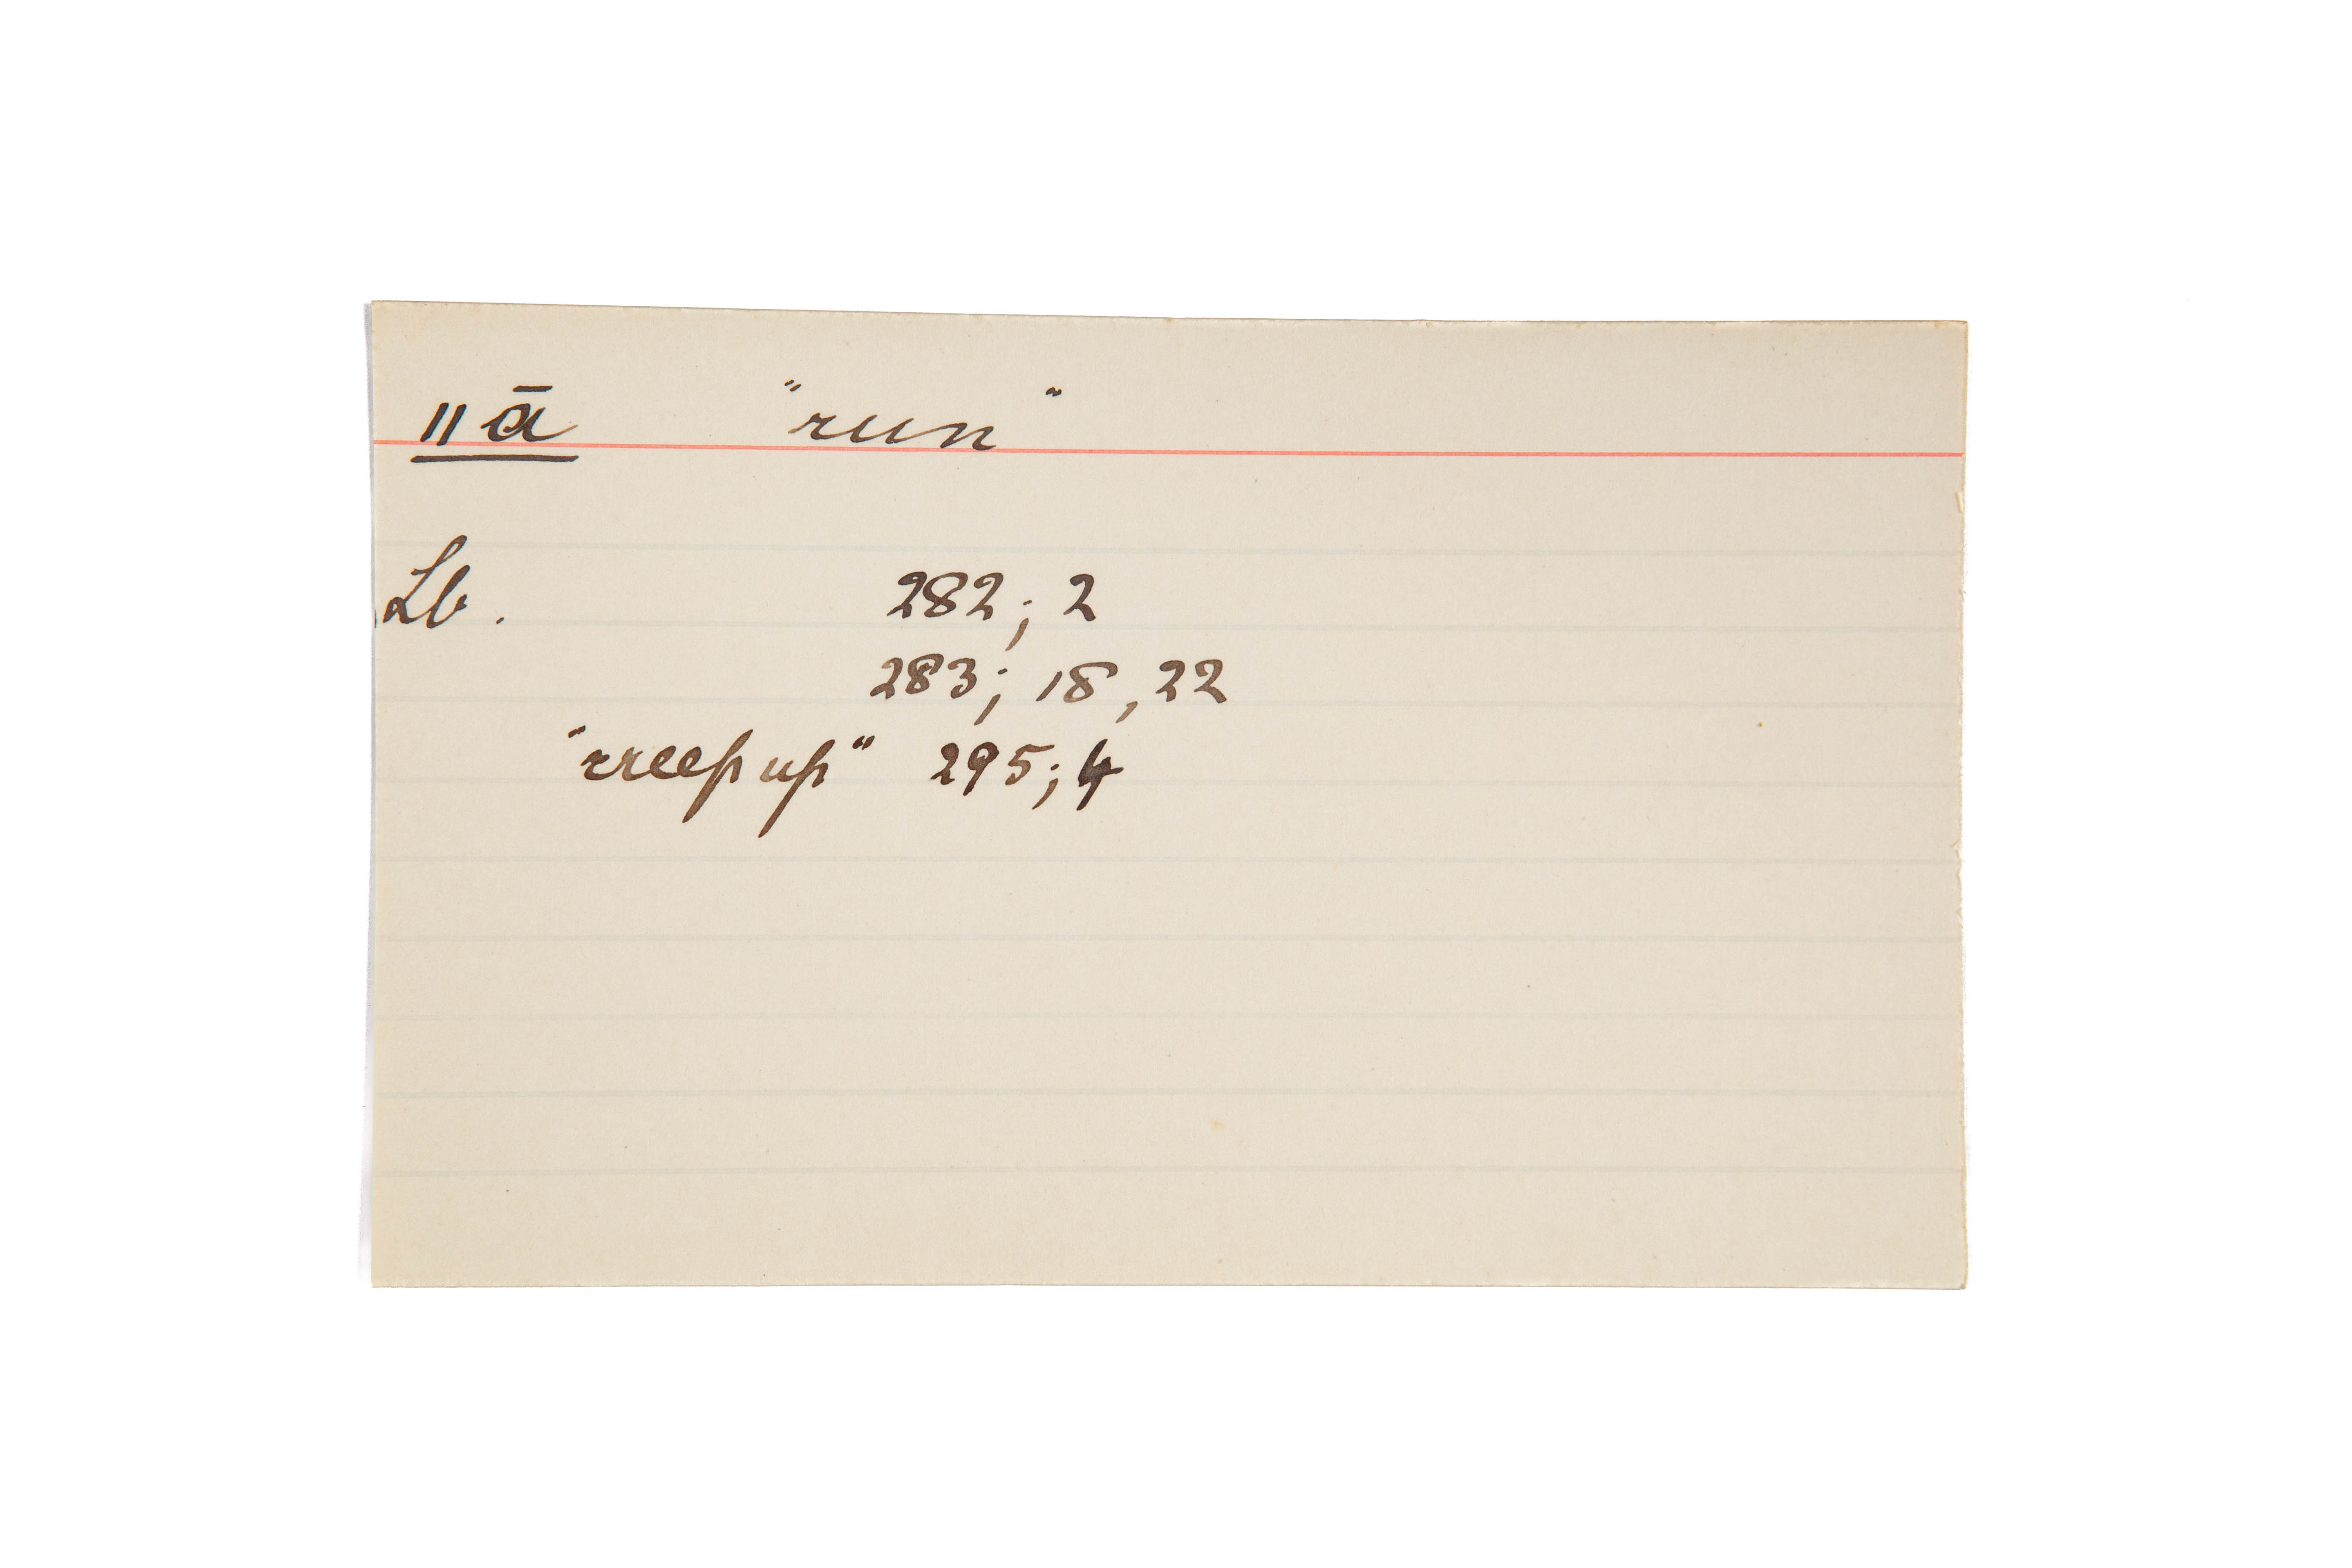 ǁā "run"
Lb. 282; 2
283; 18, 22
"creep up" 295; 4